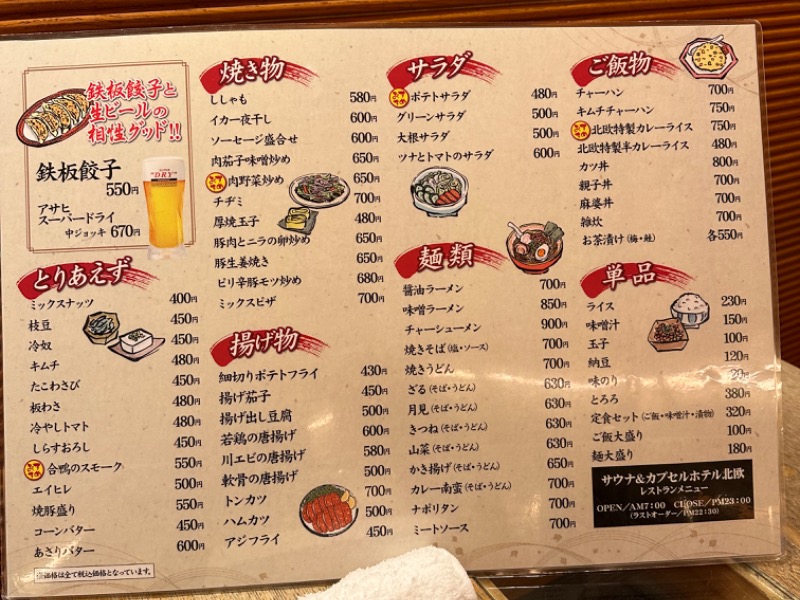 鉄板餃子と
生ビールの
相性グッド!!
鉄板餃子
550円
アサヒ
スーパードライ
中ジョッキ 670円
とりあえず
ミックスナッツ 400円
枝豆 450円
冷奴 450円
キムチ 480円
たこわさび 450円
板わさ 480円
冷やしトマト 480円
しらすおろし 450円
合鴨のスモーク 550円
エイヒレ 500円
焼豚盛り 550円
コーンバター 450円
あさりバター 600円
※価格は全て税込価格となっています。
焼き物
ししゃも 580円
イカ一夜干し 600円
ソーセージ盛合せ 600円
肉茄子味噌炒め 650円
肉野菜炒め 650円
チヂミ 700円
厚焼玉子 480円
豚肉とニラの卵炒め 650円
豚生姜焼き 650円
ピリ辛豚モツ炒め 680円
ミックスピザ 700円
揚げ物
細切りポテトフライ 430円
揚げ茄子 450円
揚げ出し豆腐 500円
若鶏の唐揚げ 500円
川エビの唐揚げ 580円
軟骨の唐揚げ 500円
トンカツ 700円
ハムカツ 500円
アジフライ 450円
サラダ
ポテトサラダ 480円
グリーンサラダ 500円
大根サラダ 500円
ツナとトマトのサラダ 600円
麺類
醤油ラーメン 700円
味噌ラーメン 850円
チャーシューメン 900円
焼きそば(塩・ソース) 700円
焼きうどん 700円
ざる(そば・うどん) 630円
月見(そば・うどん) 630円
きつね(そば・うどん) 630円
山菜(そば・うどん) 630円
かき揚げ(そば・うどん) 650円
カレー南蛮(そば・うどん) 700円
ナポリタン 700円
ミートソース 700円
ご飯物
チャーハン 700円
キムチチャーハン 750円
北欧特製カレーライス 750円
北欧特製半カレーライス 480円
カツ丼 800円
親子丼 700円
麻婆丼 700円
雑炊 700円
お茶漬け(梅・鮭) 各550円
単品
ライス 230円
味噌汁 150円
玉子 100円
納豆 120円
味のり 20円
とろろ 380円
定食セット(ご飯・味噌汁・漬物) 320円
ご飯大盛り 100円
麺大盛り 180円
サウナ&カプセルホテル北欧
レストランメニュー
OPEN/AM7:00 CLOSE/PM23:00
(ラストオーダー/PM22:30)